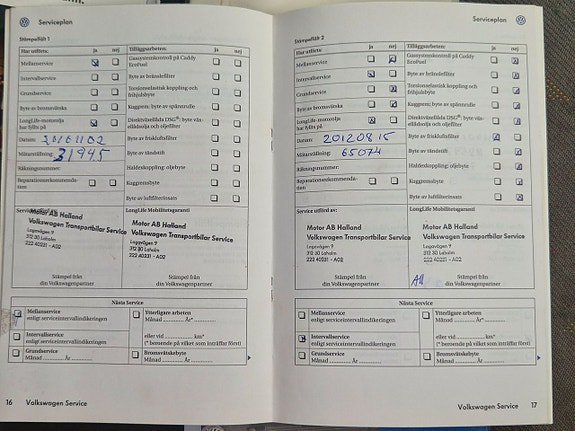 Serviceplan
Stämpelfält 1
Har utförts: ja nej
Mellanservice
Intervallservice
Grundservice
Byte av bromsvätska
LongLife-motorolja
har fyllts på
Datum:
Mätarställning: 31945
Räkningsnummer:
Reparationsrekommenda-
tion
Tilläggsarbeten: ja nej
Gassystemkontroll på Caddy
EcoFuel
Byte av bränslefilter
Torsionselastisk koppling och
frihjulsbyte
Kuggrem: byte av spännrulle
Direktväxellåda DSG®: byte väx-
ellådsolja och oljefilter
Byte av friskluftsfilter
Byte av tändstift
Haldexkoppling: oljebyte
Kuggremsbyte
Byte av luftfilterinsats
Motor AB Halland
Volkswagen Transportbilar Service
Lagavägen 9
312 30 Laholm
222 40231 - AO2
Stämpel från
din Volkswagenpartner
LongLife Mobilitetsgaranti
Motor AB Halland
Volkswagen Transportbilar Service
Lagavägen 9
312 30 Laholm
222 40231 - AO2
Stämpel från
din Volkswagenpartner
Nästa Service
Mellanservice
enligt serviceintervallindikeringen
Intervallservice
enligt serviceintervallindikeringen
Grundservice
Månad ............ År ............
Ytterligare arbeten
Månad ............ År* ............
eller vid ............ km*
(* beroende på vilket som inträffar först)
Bromsvätskebyte
Månad ............ År ............
16 Volkswagen Service
Serviceplan
Stämpelfält 2
Har utförts: ja nej
Mellanservice
Intervallservice
Grundservice
Byte av bromsvätska
LongLife-motorolja
har fyllts på
Datum: 20120815
Mätarställning: 65074
Räkningsnummer:
Reparationsrekommenda-
tion
Tilläggsarbeten: ja nej
Gassystemkontroll på Caddy
EcoFuel
Byte av bränslefilter
Torsionselastisk koppling och
frihjulsbyte
Kuggrem: byte av spännrulle
Direktväxellåda DSG®: byte väx-
ellådsolja och oljefilter
Byte av friskluftsfilter
Byte av tändstift
Haldexkoppling: oljebyte
Kuggremsbyte
Byte av luftfilterinsats
Service utförd av:
Motor AB Halland
Volkswagen Transportbilar Service
Lagavägen 9
312 30 Laholm
222 40231 - AO2
Stämpel från
din Volkswagenpartner
LongLife Mobilitetsgaranti
Motor AB Halland
Volkswagen Transportbilar Service
Lagavägen 9
312 30 Laholm
222 40231 - AO2
Stämpel från
din Volkswagenpartner
Nästa Service
Mellanservice
enligt serviceintervallindikeringen
Intervallservice
enligt serviceintervallindikeringen
Grundservice
Månad ............ År ............
Ytterligare arbeten
Månad ............ År* ............
eller vid ............ km*
(* beroende på vilket som inträffar först)
Bromsvätskebyte
Månad ............ År ............
Volkswagen Service 17